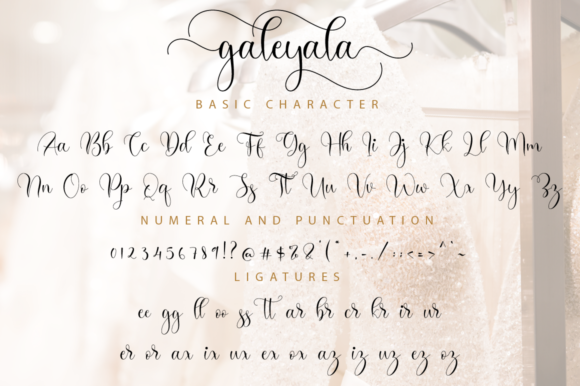 galeyala
BASIC CHARACTER
Aa Bb Cc Dd Ee Ff Gg Hh Ii Jj Kk Ll Mm
Nn Oo Pp Qq Rr Ss Tt Uu Vv Ww Xx Yy Zz
NUMERAL AND PUNCTUATION
0123456789!?@#$%&'("+,-./:;<=>^`~
LIGATURES
ee gg ll oo ss tt ar br cr kr ir ur
er or ax ix ux ex ox az iz uz ez oz